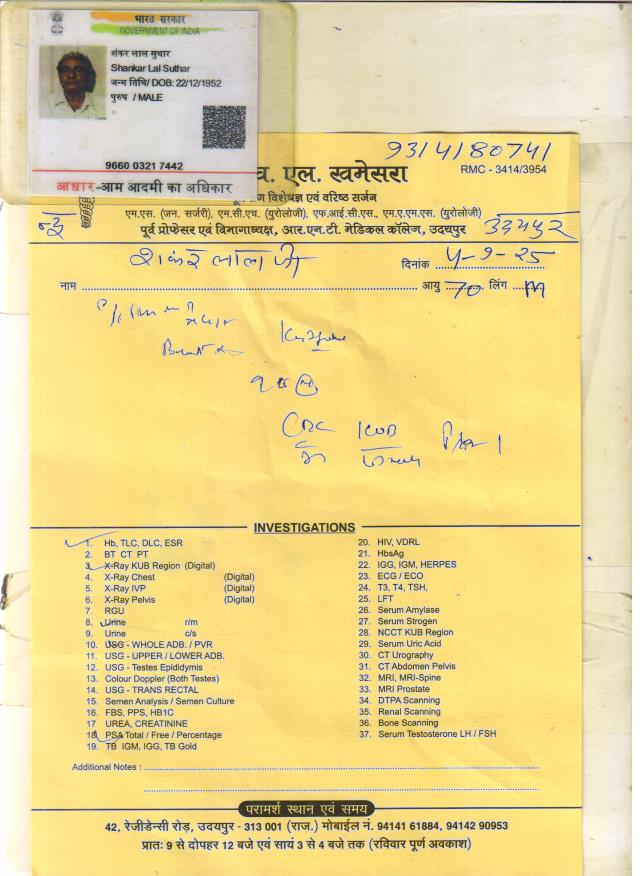 भारत सरकार
GOVERNMENT OF INDIA
शंकर लाल सुथार
Shankar Lal Suthar
जन्म तिथि/ DOB: 22/12/1952
पुरुष / MALE
9660 0321 7442
आधार-आम आदमी का अधिकार
9314180741
एल. खमेसरा
RMC - 3414/3954
विशेषज्ञ एवं वरिष्ठ सर्जन
एम.एस. (जन. सर्जरी), एम.सी.एच. (युरोलोजी), एफ.आई.सी.एस., एम.ए.एम.एस. (युरोलोजी)
पूर्व प्रोफेसर एवं विभागाध्यक्ष, आर.एन.टी. मेडिकल कॉलेज, उदयपुर उदयपुर
शंकर लाल जी दिनांक
नाम आयु 70 लिंग M
CBC KUB
INVESTIGATIONS
1. Hb, TLC, DLC, ESR
2. BT CT PT
3. X-Ray KUB Region (Digital)
4. X-Ray Chest (Digital)
5. X-Ray IVP (Digital)
6. X-Ray Pelvis (Digital)
7. RGU
8. Urine r/m
9. Urine c/s
10. USG - WHOLE ADB. / PVR
11. USG - UPPER / LOWER ADB.
12. USG - Testes Epididymis
13. Colour Doppler (Both Testes)
14. USG - TRANS RECTAL
15. Semen Analysis / Semen Culture
16. FBS, PPS, HB1C
17 UREA, CREATININE
18. PSA Total / Free / Percentage
19. TB IGM, IGG, TB Gold
20. HIV, VDRL
21. HbsAg
22. IGG, IGM, HERPES
23. ECG / ECO
24. T3, T4, TSH,
25. LFT
26. Serum Amylase
27. Serum Strogen
28. NCCT KUB Region
29. Serum Uric Acid
30. CT Urography
31. CT Abdomen Pelvis
32. MRI, MRI-Spine
33. MRI Prostate
34. DTPA Scanning
35. Renal Scanning
36. Bone Scanning
37. Serum Testosterone LH / FSH
Additional Notes :
परामर्श स्थान एवं समय
42, रेजीडेन्सी रोड़, उदयपुर - 313 001 (राज.) मोबाईल नं. 94141 61884, 94142 90953
प्रातः 9 से दोपहर 12 बजे एवं सायं 3 से 4 बजे तक (रविवार पूर्ण अवकाश)